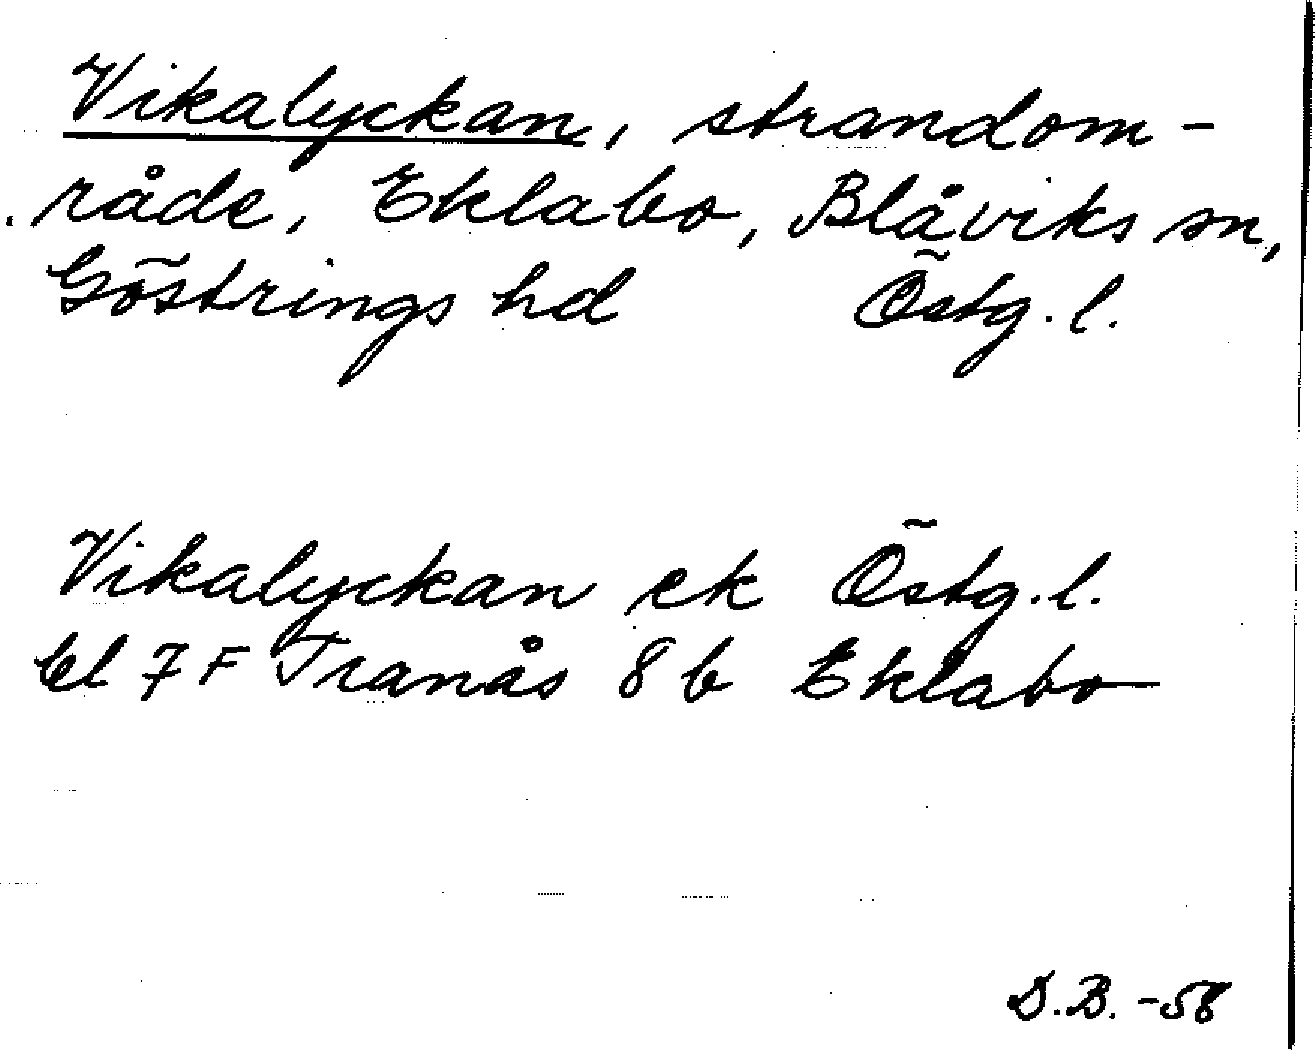 Vikalyckan, strandom-
råde, Eklabo, Blåviks sn,
Göstrings hd Östg. l.
Vikalyckan ek Östg. l.
bl 7 F Tranås 8 b Eklabo
D.B. -58